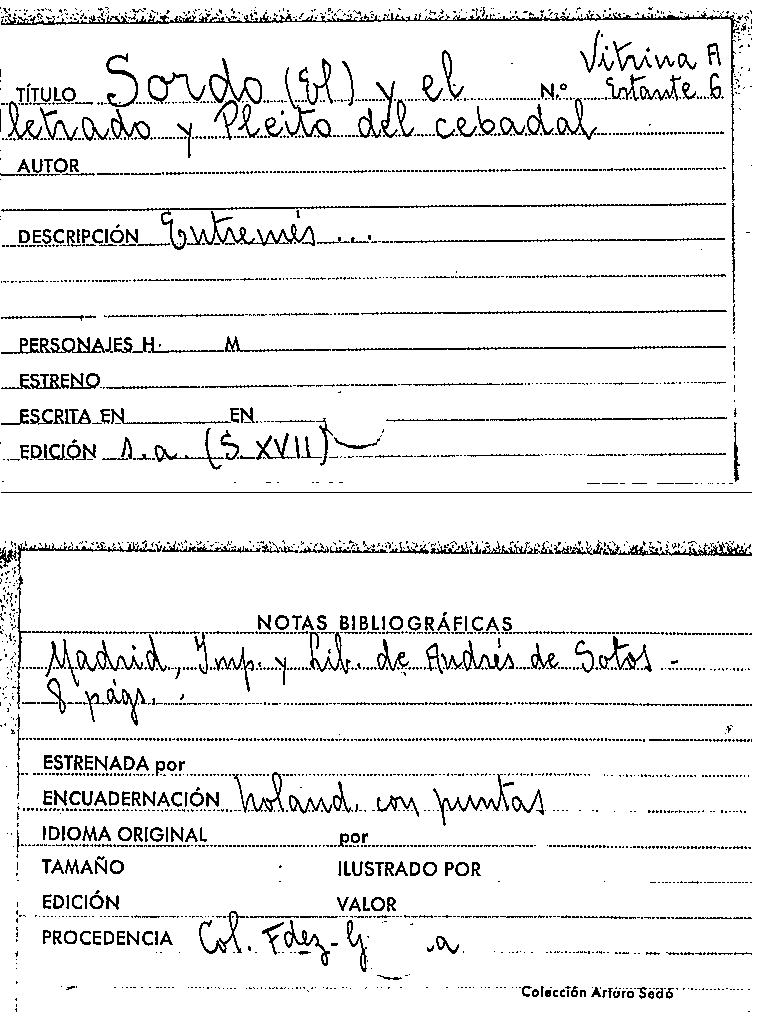 Vitrina A
TÍTULO Sordo (El) y el N.º Estante 6
letrado y Pleito del cebadal
AUTOR
DESCRIPCIÓN Entremés ...
PERSONAJES H. M
ESTRENO
ESCRITA EN EN
EDICIÓN s.a. (S. XVII)
NOTAS BIBLIOGRÁFICAS
Madrid, Imp. y Lib. de Andrés de Sotos -
8 págs.
ESTRENADA por
ENCUADERNACIÓN holand. con puntas
IDIOMA ORIGINAL por
TAMAÑO ILUSTRADO POR
EDICIÓN VALOR
PROCEDENCIA Col. Fdez-G
Colección Arturo Sedó